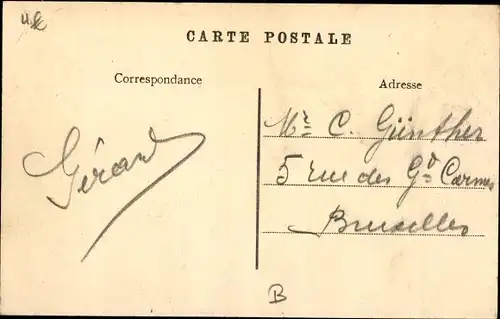 CARTE POSTALE
Correspondance
Adresse
Gérard
Mr C. Günther
5 rue des Gds Carmes
Bruxelles
B